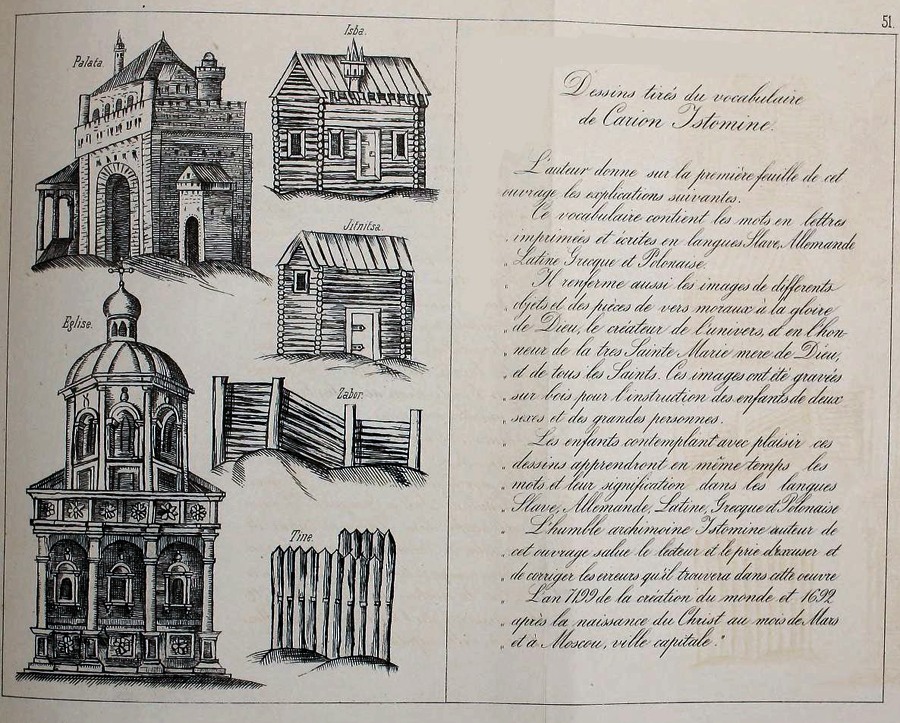 51.
Palata.
Isba.
Jitnitsa.
Eglise.
Zabor.
Tine.
Dessins tirés du vocabulaire
de Carion Istomine.
L'auteur donne sur la première feuille de cet
ouvrage les explications suivantes.
Ce vocabulaire contient les mots en lettres
„ imprimées et écrites en langues Slave, Allemande
„ Latine Grecque et Polonaise.
„ Il renferme aussi les images de differents
„ objets et des pièces de vers moraux à la gloire
„ de Dieu, le créateur de l'univers, et en l'hon-
„ neur de la tres Sainte Marie mere de Dieu,
„ et de tous les Saints. Ces images ont été gravées
„ sur bois pour l'instruction des enfants de deux
„ sexes et des grandes personnes.
„ Les enfants contemplant avec plaisir ces
„ dessins apprendront en même temps les
„ mots et leur signification dans les langues
„ Slave, Allemande, Latine, Grecque et Polonaise
„ L'humble archimoine Istomine auteur de
„ cet ouvrage salue le lecteur et le prie d'exuser et
„ de corriger les erreurs qu'il trouvera dans cette oeuvre
„ L'an 7199 de la création du monde et 1692
„ après la naissance du Christ au mois de Mars
„ et à Moscou, ville capitale."